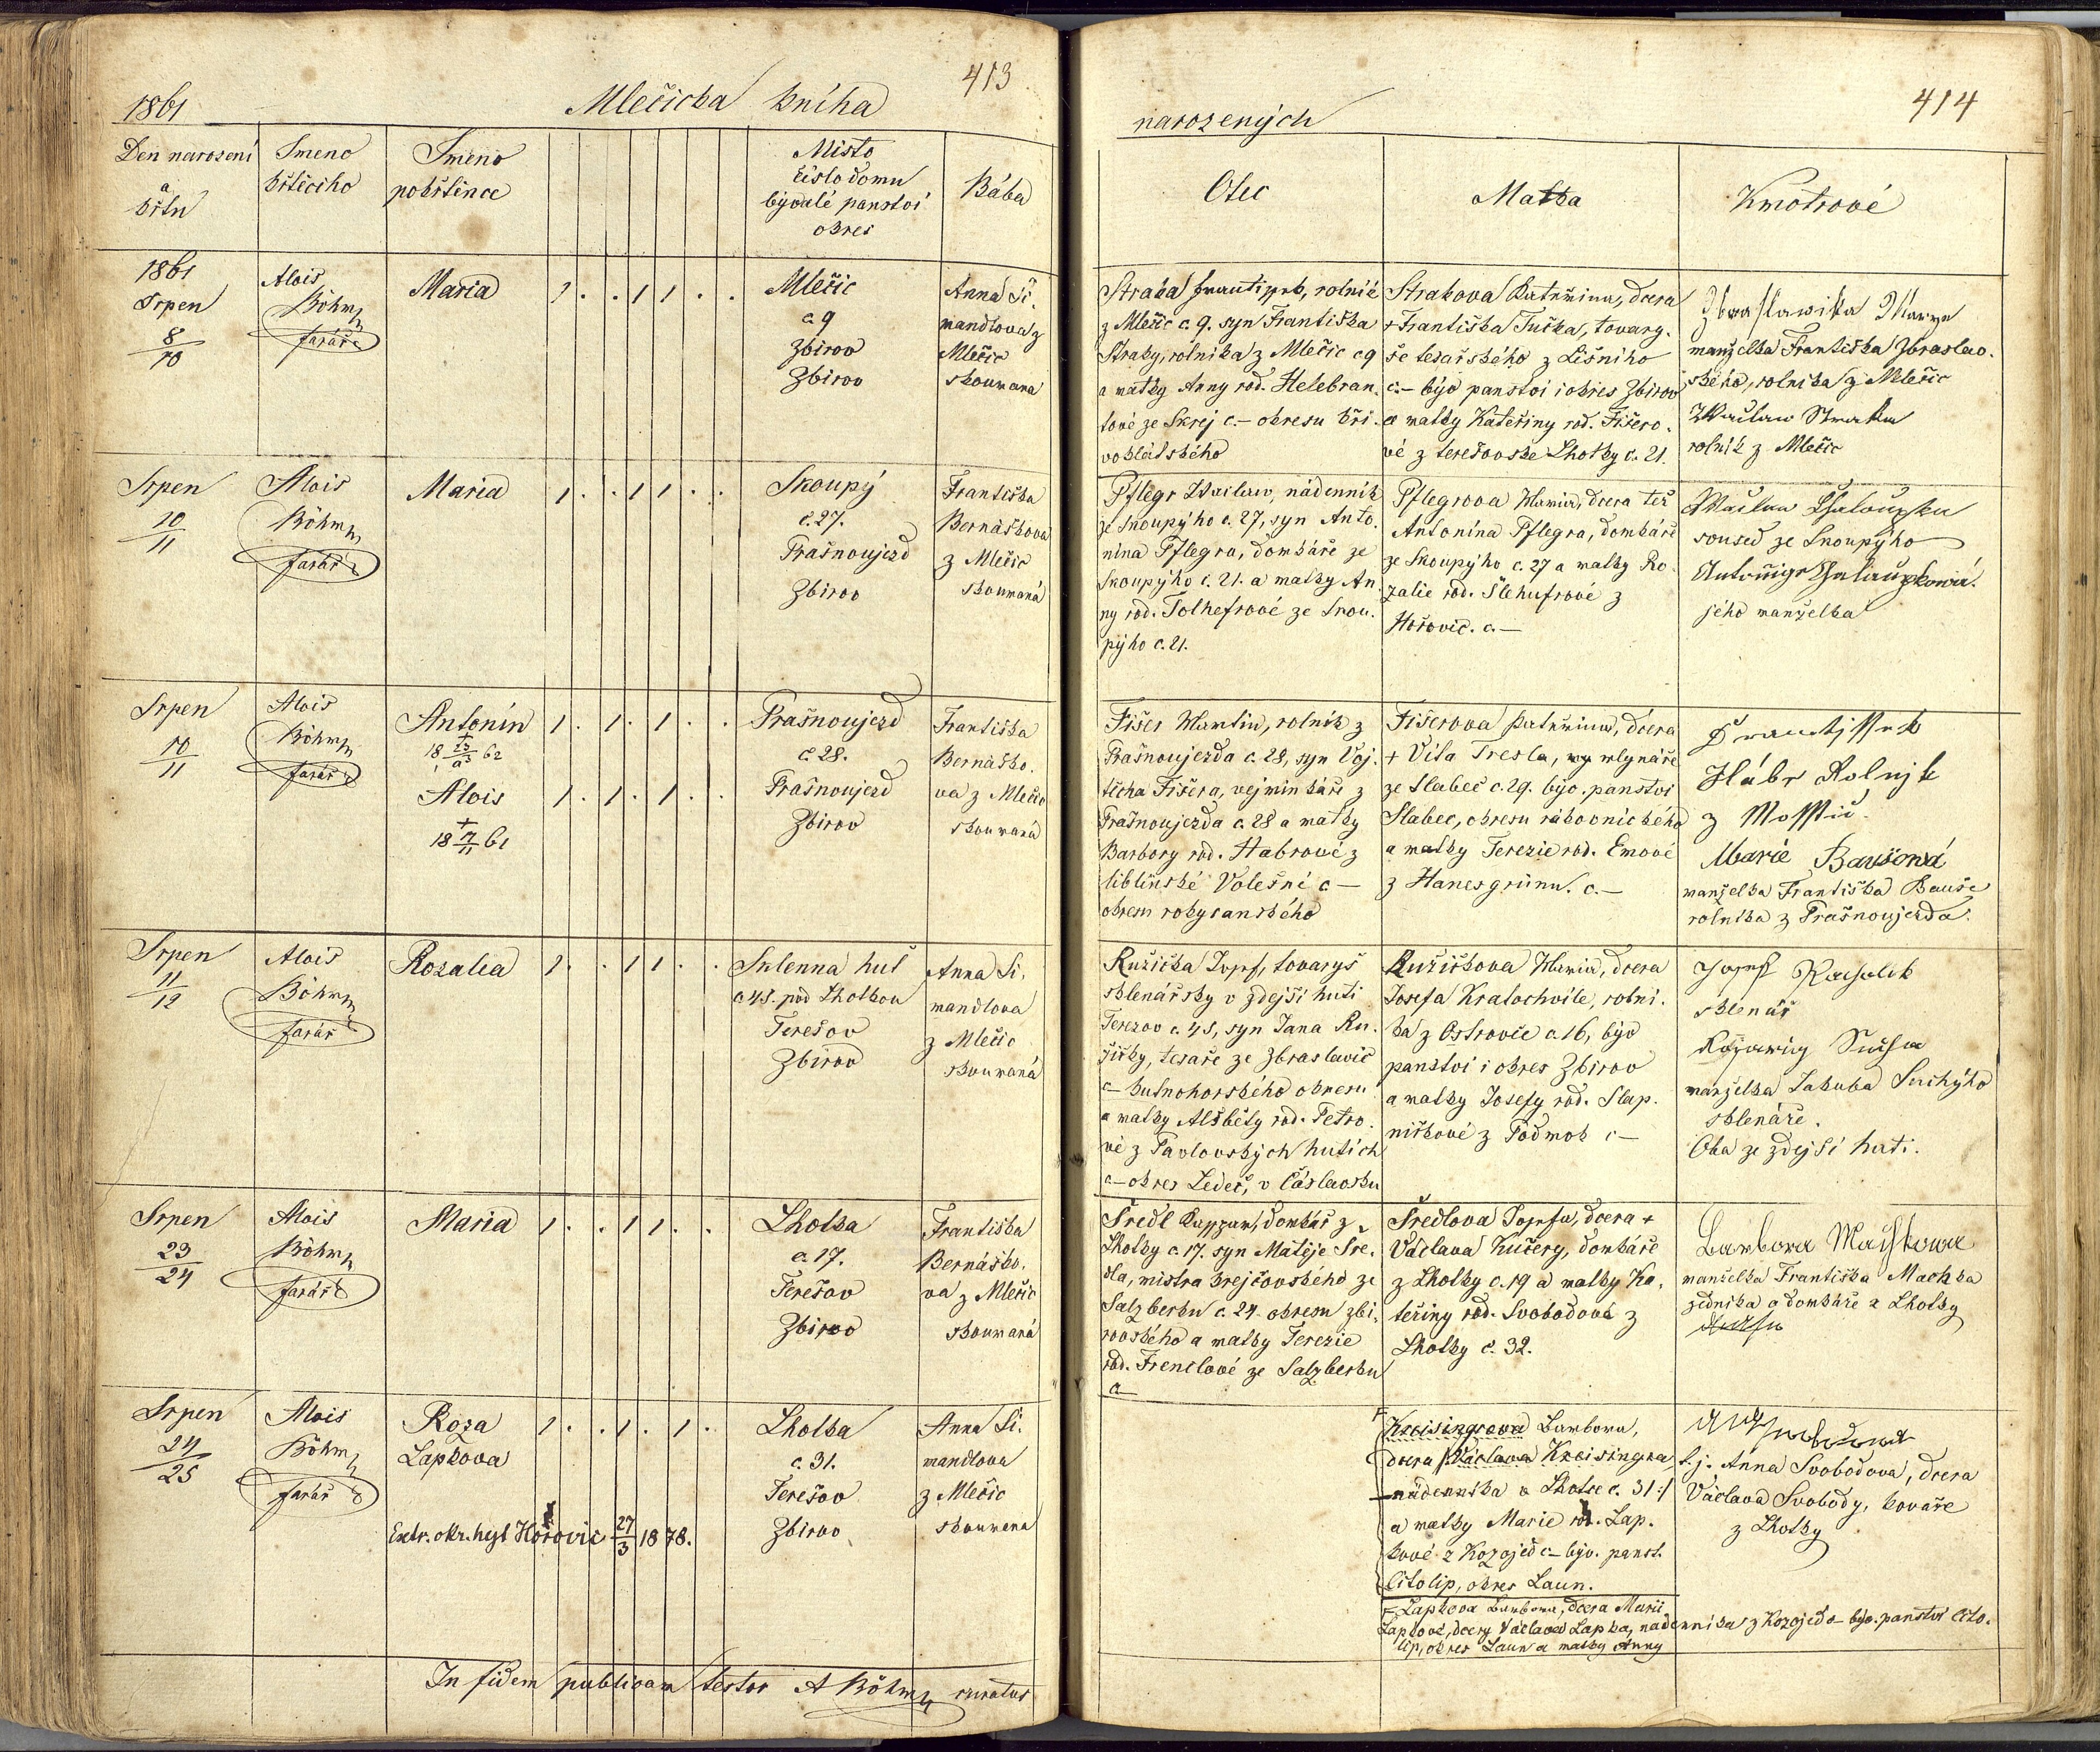 413
1861
Mlečická kniha
Den narození
a
křtu
Jmeno
křtěcího
Jmeno
pokřtěnce
Místo
číslo domu
bývalé panství
okres
Bába
1861
Srpen
8
10
Alois
Böhm
farář
Maria
1 . . 1 1 . .
Mlečic
c. 9
Zbirov
Zbirov
Anna Ši
mandlova z
Mlečic
zkoumaná
Srpen
10
11
Alois
Böhm
farář
Maria
1 . . 1 1 . .
Skoupý
č. 27.
Prašnoujezd
Zbirov
Františka
Bernášková
z Mlečic
zkoumaná
Srpen
10
11
Alois
Böhm
farář
Antonín
+
18 23/a3 62
Alois
+
18 7/11 61
1 . 1 . 1 . .
1 . 1 . 1 . .
Prašnoujezd
č. 28.
Prašnoujezd
Zbirov
Františka
Bernáško.
va z Mlečic
zkoumaná
Srpen
11
12
Alois
Böhm
farář
Rozalia
1 . . 1 1 . .
Sklenna huť
c 45. pod Lhotkou
Terešov
Zbirov
Anna Ši.
mandlova
z Mlečic
zkoumaná
Srpen
23
24
Alois
Böhm
farář
Maria
1 . . 1 1 . .
Lhotka
c. 17.
Terešov
Zbirov
Františka
Bernáško.
va z Mlečic
zkoumaná
Srpen
24
25
Alois
Böhm
farář
Roza
Lapkova
1 . . 1 . 1 .
Extr. okr. hejt Hořovic 27/3 1878.
Lhotka
c. 31.
Terešov
Zbirov
Anna Ši.
mandlova
z Mlečic
zkoumena
In fidem publicam testor A Böhm curatus
414
narozených
Otec
Matka
Kmotrové
Straka Frantissek, rolník
z Mlečic c. 9. syn Františka
Straky, rolníka z Mlečic c 9
a matky Anny rod. Helebran.
tové ze Skrej c.– okresu kři.
voklátského
Strakova Kateřina, dcera
+ Františka Tučka, tovarý.
še tesařského z Lišního
c.– býv panství i okres Zbirov
a matky Kateřiny rod. Fišero.
vé z terešovske Lhotky c. 21.
Zbraslawska Marye
manželka Františka Zbraslav.
ského, rolníka z Mlečic
Wáclaw Straka
rolník z Mlečic
Pflegr Wáclaw, nádenník
ze Skoupýho c. 27, syn Anto.
nína Pflegra, domkáře ze
Skoupýho č. 21. a matky An
ny rod. Tolhefrové ze Skou.
pýho c. 21.
Pflegrova Maria, dcera též
Antonína Pflegra, domkáře
ze Skoupýho c. 27 a matky Ro.
zalie rod. Šlehufrové z
Hořovic. c.–
Wáclaw Chaloupka
soused ze Skoupýho
Antonije Chalaupkowá.
jého manželka
Fišer Martin, rolník z
Prašnoujezda c. 28, syn Voj.
těcha Fišera, vejminkáře z
Prašnoujezda c. 28 a matky
Barbory rod. Habrové z
liblinské Volešné c –
okresu rokycanského
Fišerova Kateřina, dcera
+ Víta Tresla, mlynáře
ze Slabec c. 29. býv. panství
Slabec, okresu rákovnického
a matky Terezie rod. Emové
z Hanesgrünu. c.–
Frantissek
Hábr Rolnjk
z Mosstic.
Marie Baušowá
manželka Františka Bauše
rolníka z Prašnoujezda.
Ružička Josef, tovaryš
sklenářsky v zdejší huti
Terezov c. 45, syn Jana Ru.
žičky, tesaře ze Zbraslavic
c– kutnohorského okresu
a matky Alžběty rod. Petro.
vé z Pavlovských hutích
c– okres Ledeč, v Čáslavsku
Ružičkova Maria, dcera
Josefa Kratochvíle, rolní.
ka z Ostrovce c. 16, býv
panství i okres Zbirov
a matky Josefy rod. Slap.
ničkové z Podmok c –
Josef
sklenář
manželka Jakuba Suchýho
sklenáře.
Oba ze zdejší huti.
Šredl Kasspar, domkář z
Lhotky c. 17. syn Matěje Šre.
dla, mistra krejčovského ze
Salzberku c. 24. okresu zbi.
rovského a matky Terezie
rod. Frenclové ze Salzberku
c–
Šredlova Josefa, dcera +
Václava Kučery, domkáře
z Lhotky c. 19 a matky Ka.
teřiny rod. Svobodové z
Lhotky č. 32.
Barbora Machkowa
manželka Františka Machka
zedníka a domkáře z Lhotky
F
Kreisingrova Barbora,
dcera /:Václava Kreisingra
nádenníka v Lhotce c. 31:/
a matky Marie rod. Lap.
kové z Kozojed c– býv. panst.
Citolip, okres Laun.
F Lapkova Barbora, dcera Marii
Lapkové, dcery Václava Lapka, nadenníka z Kozojed c– býv. panství Cito.
lip, okres Laun a matky Anny
t. j. Anna Svobodova, dcera
Václava Svobody, kováře
z Lhotky